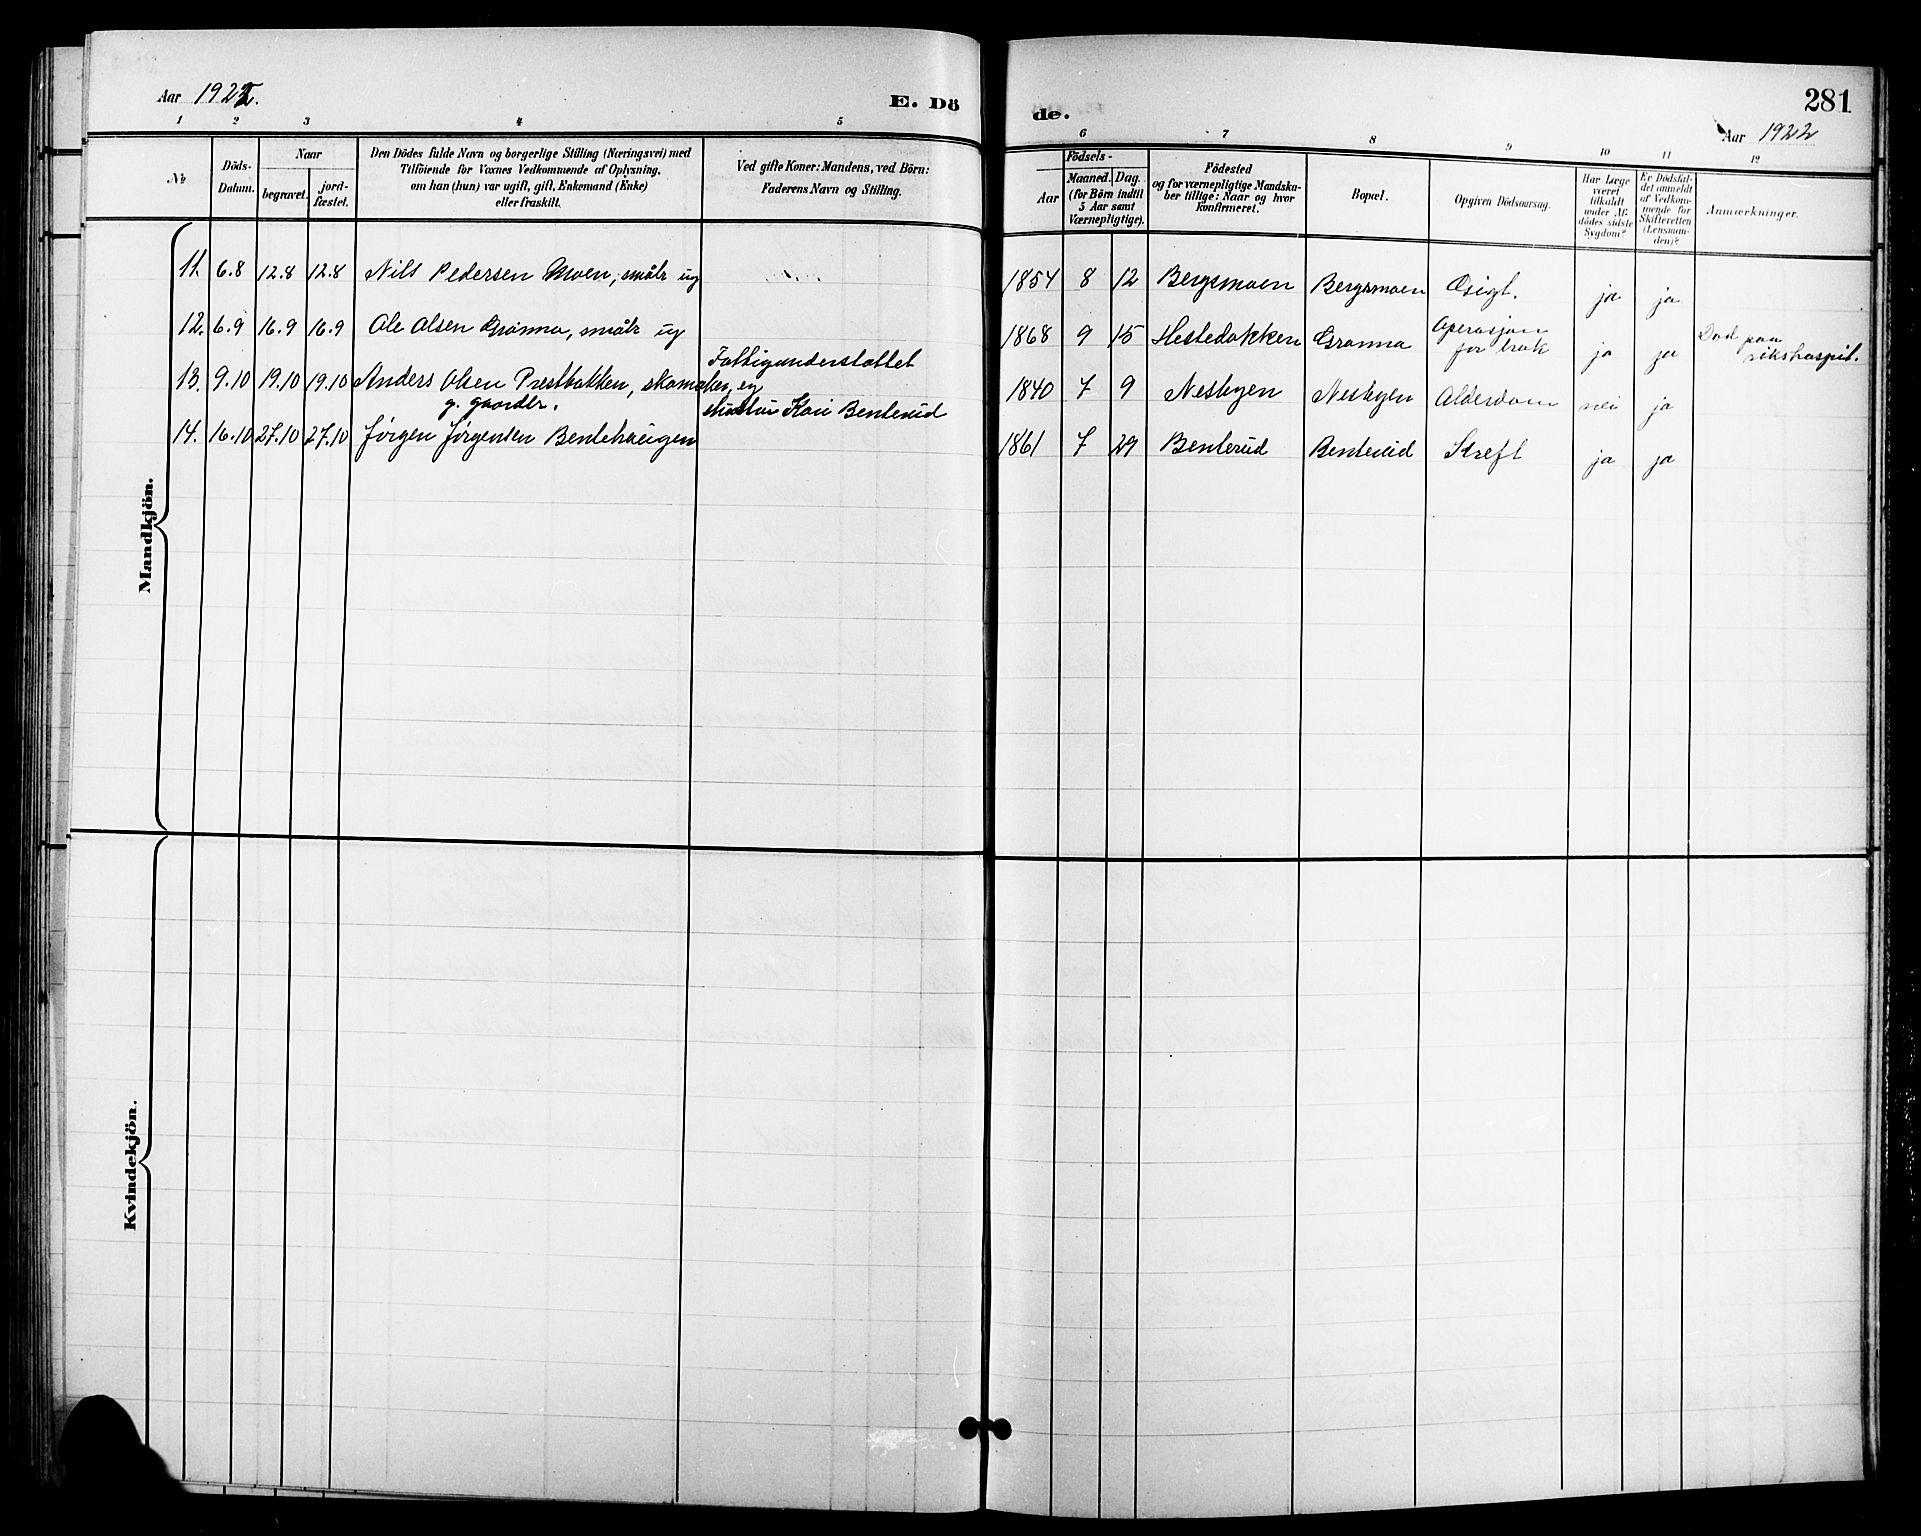 Aar 1922.
E. Dö
de.
281
Aar 1922
1 2 3 4 5
6 7 8 9 10 11 12
No
Döds-Datum.
Naar
begravet.
jord-fæstet.
Den Dödes fulde Navn og borgerlige Stilling (Næringsvei) med
Tilföiende for Voxnes Vedkommende af Oplysning,
om han (hun) var ugift, gift, Enkemand (Enke)
eller fraskilt.
Ved gifte Koner: Mandens, ved Börn:
Faderens Navn og Stilling.
Födsels-
Aar
Maaned. Dag.
(for Börn indtil
5 Aar samt
Værnepligtige).
Födested
og for værnepligtige Mandska-
ber tillige: Naar og hvor
konfirmeret.
Bopæl.
Opgiven Dödsaarsag.
Har Læge
været
tilkaldt
under Af-
dödes sidste
Sygdom?
Er Dödsfal-
det anmeldt
af Vedkom-
mende for
Skifteretten
(Lensman-
den)?
Anmærkninger.
Mandkjön.
11. 6.8 12.8 12.8 Nils Pedersen Moen, småbr ug 1854 8 12 Bergsmoen Bergsmoen ja ja
12. 6.9 16.9 16.9 Ole Olsen Grønna, småbr ug 1868 9 15 Grønna Operasjon
for brok ja ja Død paa
rikshospit.
Fattigunderstøttet
13. 9.10 19.10 19.10 Anders Olsen Prestbakken, skomaker, e 1840 7 9 Nesbyen Nesbyen Alderdom nei ja
g. gaardbr. hustru Kari Benterud
14. 16.10 27.10 27.10 Jørgen Jørgensen Bentehaugen 1861 7 29 Benterud Benterud Kreft ja ja
Kvindekjön.